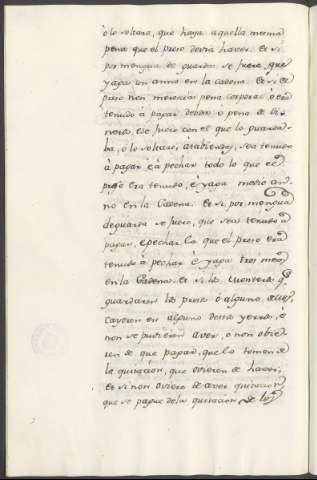 ó lo soltare, que haya aquella mesma
pena que el preso devia haver. Et si
por mengua de guarda se fuere, que
yaga un anno en la cadena. Et si el
preso non merescia pena corporal ó era
tenudo á pagar debdo ó pena de di-
neros, ese fuere con el que lo guarda-
ba, ó lo soltare, á sabiendas, sea tenudo
á pagar é á pechar todo lo que el
preso era tenudo, é yaga medio an-
no en la Cadena. Et si, por mengua
de guarda se fuere, que sea tenudo á
pagar, é pechar lo que el preso era
tenudo á pechar é yaga tres meses
en la Cadena. Et si los Monteros q
guardaren los presos ó alguno dellos,
cayeren en alguno destos yerros, é
non se pudieren aver, ó non obie-
ren de que pagar, que lo tomen de
la quitacion, que ovieren de haver;
et si non oviere de aver quitacion
que se pague de la quitacion de los